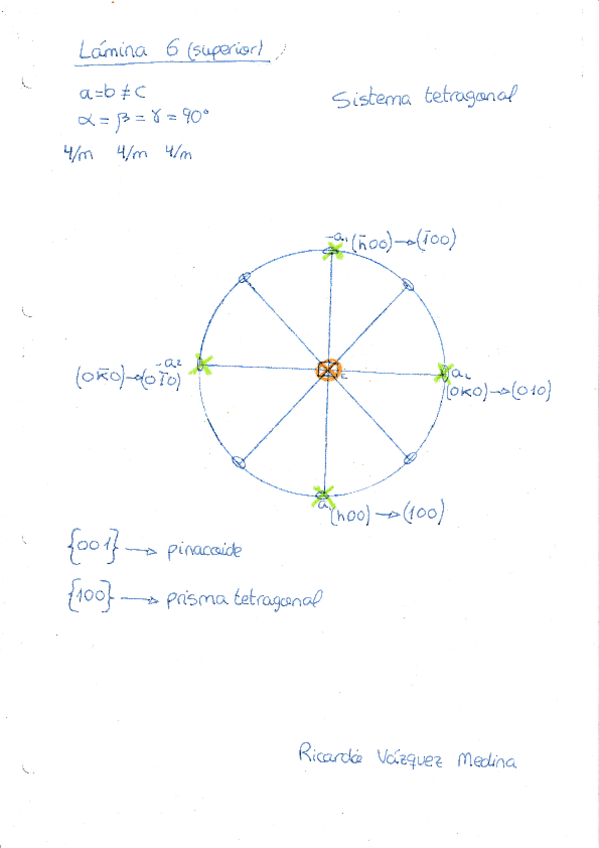 Lámina 6 (superior)
a=b≠c
Sistema tetragonal
α=β=γ=90°
4/m 4/m 4/m
-a₁ (h̄00)→(1̄00)
-a₂
(0k̄0)→(01̄0)
c
a₂
(0k0)→(010)
a₁
(h00)→(100)
{001} → pinacoide
{100} → prisma tetragonal
Ricardo Vázquez Medina